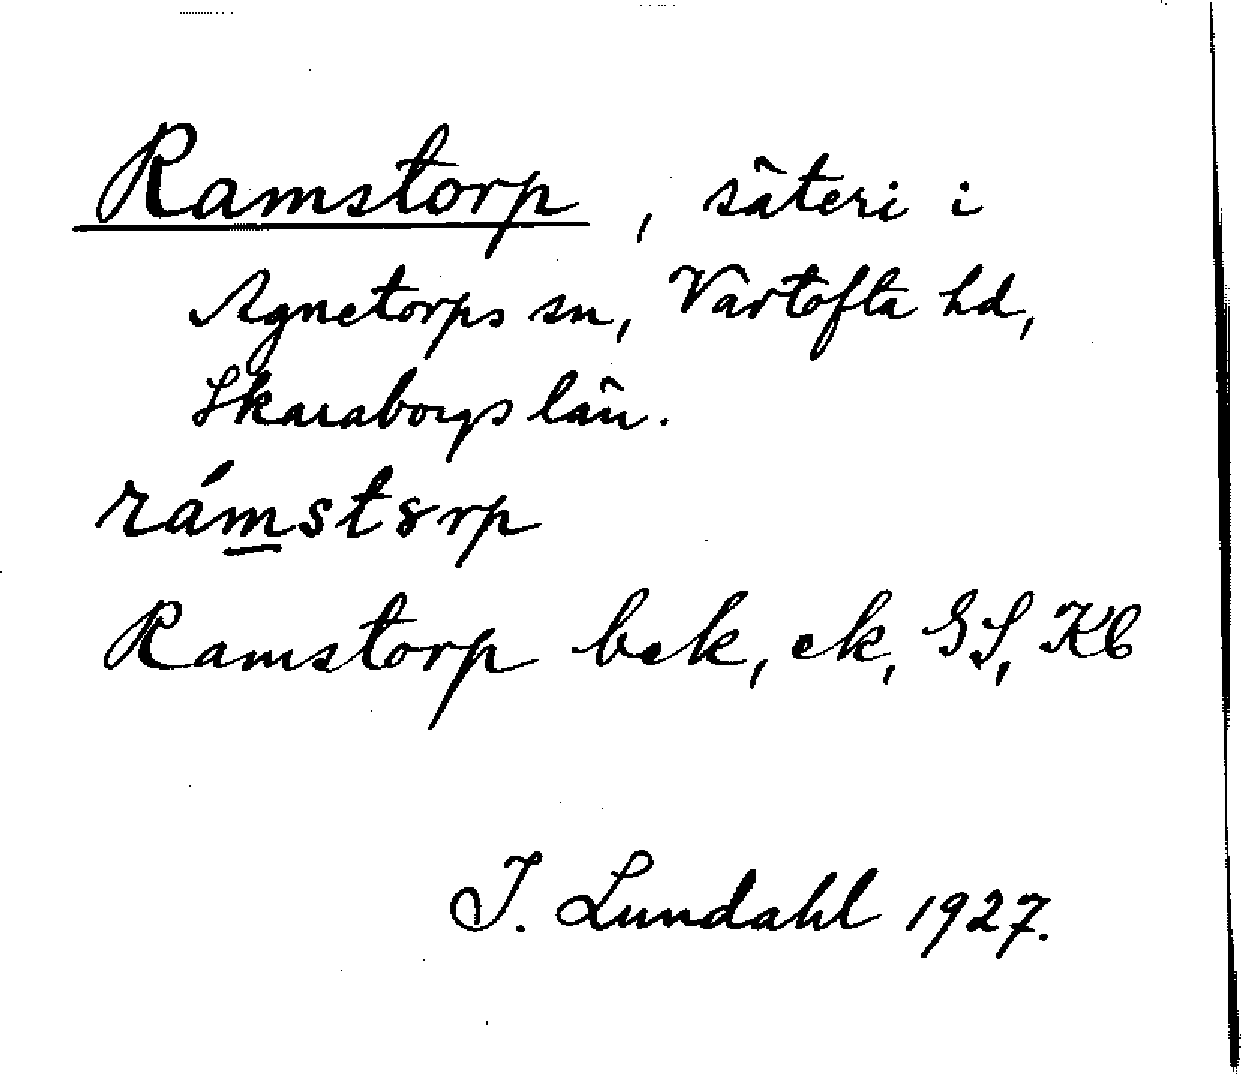 Ramstorp, säteri i
Agnetorps sn, Vartofta hd,
Skaraborgs län.
rámst8rp
Ramstorp bek, ek, GS, Kb
I. Lundahl 1927.